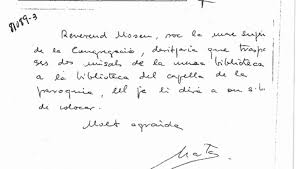 81089-3
Reverend Mossen, soc la mare supe
de la Congregació, desitjaria que traspas
ses dos missals de la meva biblioteca
a la biblioteca del capellà de la
parroquia, ell ja li dirà a on s'h
de colocar.
Molt agraida